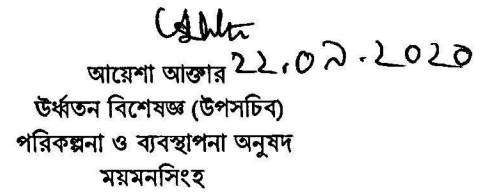 আয়েশা আক্তার ২২.০৯.২০২০
উর্ধ্বতন বিশেষজ্ঞ (উপসচিব)
পরিকল্পনা ও ব্যবস্থাপনা অনুষদ
ময়মনসিংহ